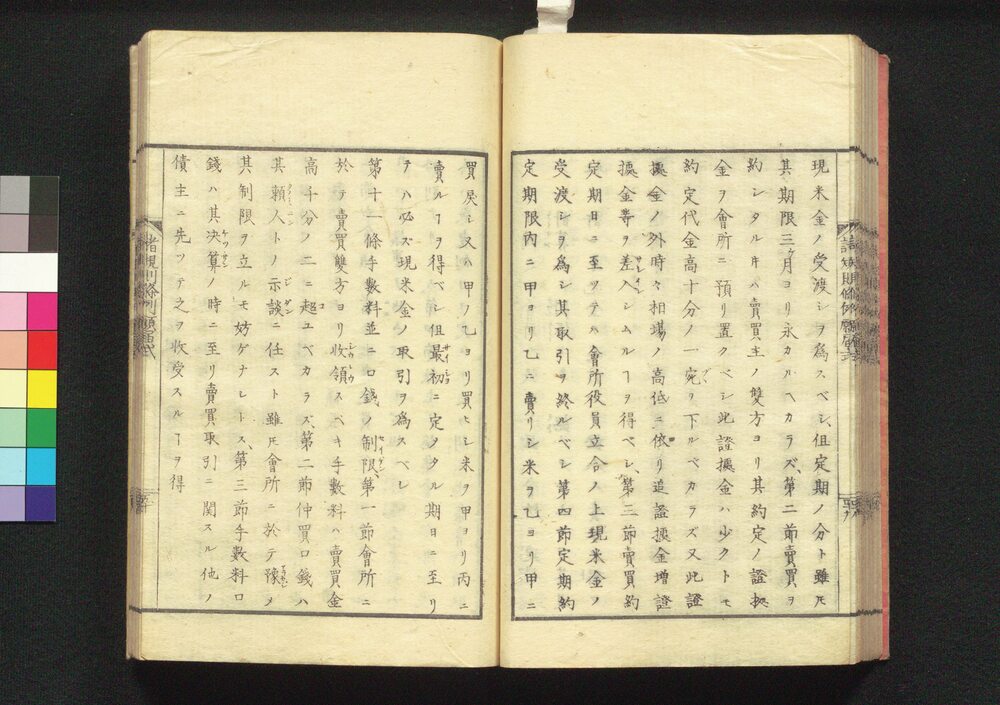 現米金ノ受渡シヲ爲スベシ、但定期ノ分ト雖𪜈
其期限三ヶ月ヨリ永カルヘカラズ、第二節賣買ヲ
約シタルキハ賣買主ノ雙方ヨリ其約定ノ證拠
金ヲ會所ニ預リ置クベシ此證據金ハ少クトモ
約定代金高十分ノ一宛ヲ下ルベカラズ又此證
據金ノ外時々相場ノ高低ニ依リ追證據金増證
據金等ヲ差入シムルヿヲ得ベシ、第三節賣買約
定期日ニ至ツテハ會所役員立合ノ上現米金ノ
受渡シヲ爲シ其取引ヲ終ルベシ第四節定期約
定期限内ニ甲ヨリ乙ニ賣リシ米ヲ乙ヨリ甲ニ
買戻シ又ハ甲ノ乙ヨリ買ヒシ米ヲ甲ヨリ丙ニ
賣ルヿヲ得ベシ但最初ニ定タル期日ニ至リ
テハ必ズ現米金ノ取引ヲ爲スベシ
第十一條手數料並ニ口錢ノ制限、第一節會所ニ
於テ賣買雙方ヨリ收領スベキ手數料ハ賣買金
高千分ノ二ニ超ユベカラズ、第二節仲買口錢ハ
其頼人トノ示談ニ任スト雖𪜈會所ニ於テ豫メ
其制限ヲ立ルモ妨ゲナレトス、第三節手數料口
錢ハ其决算ノ時ニ至リ賣買取引ニ関スル他ノ
債主ニ先ツテ之ヲ收受スルヿヲ得